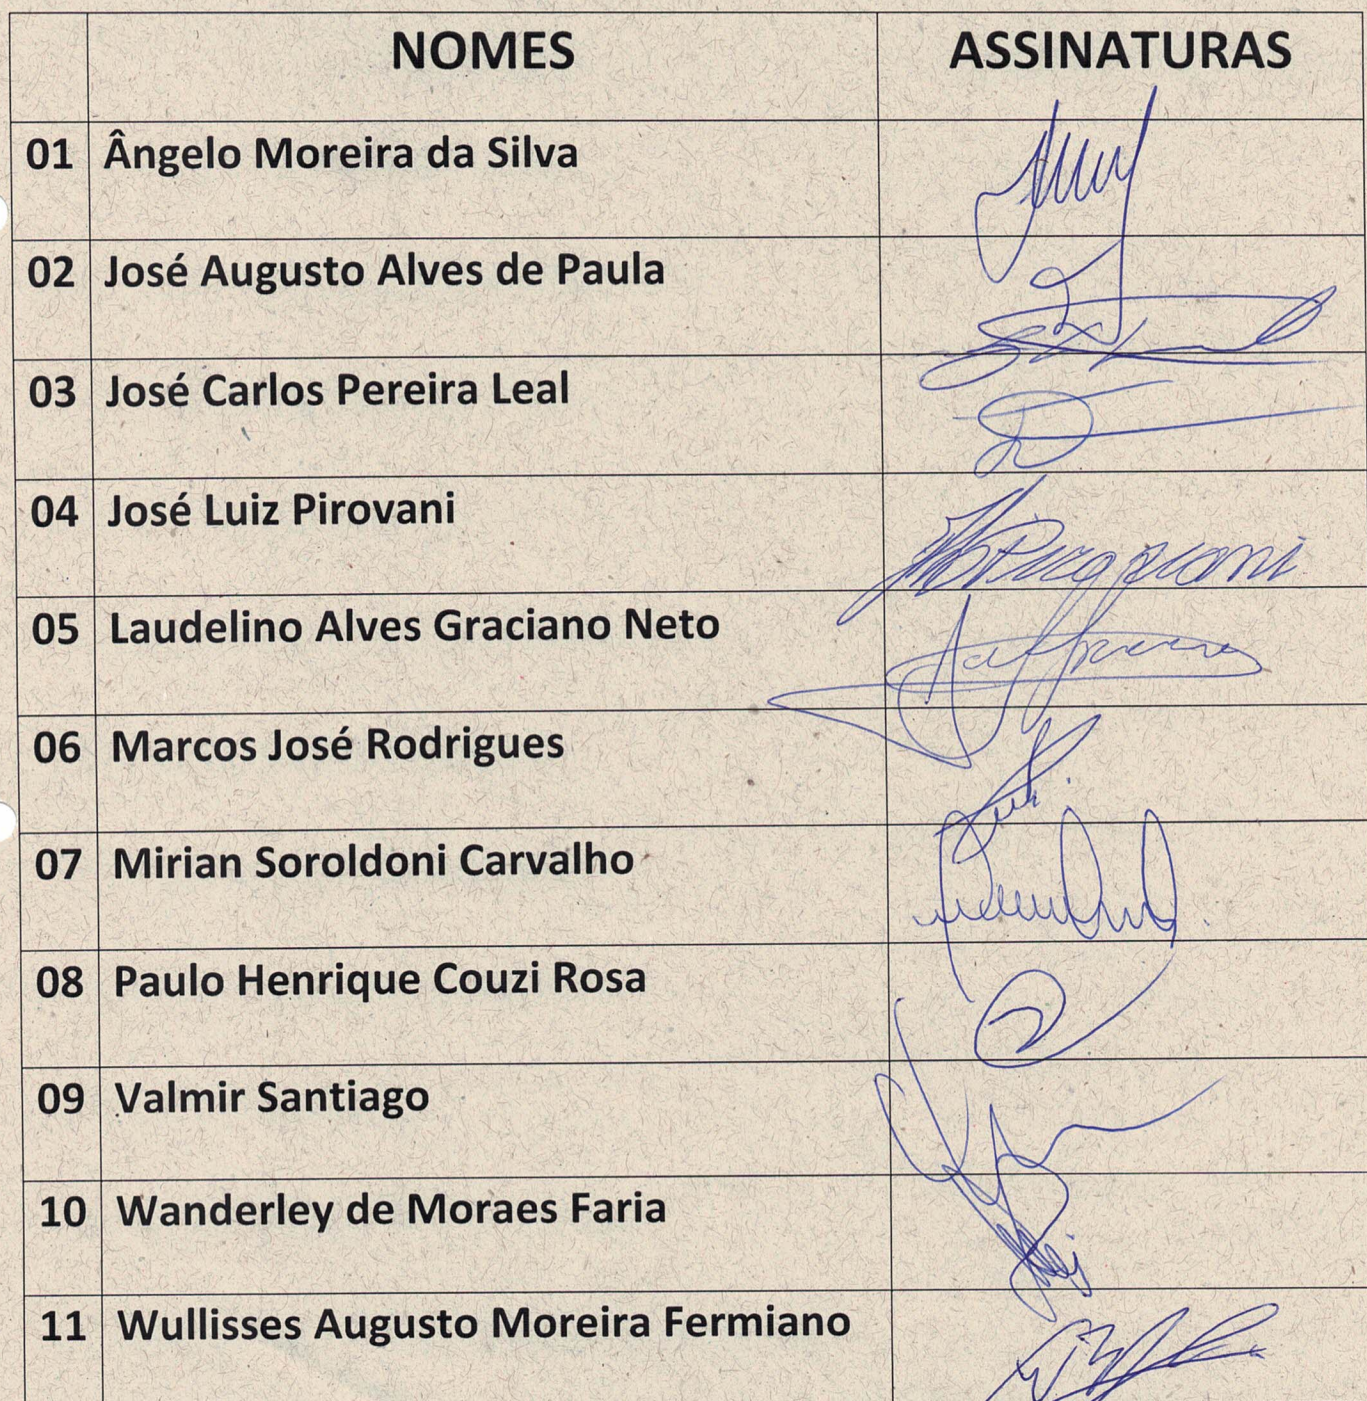 NOMES ASSINATURAS
01 Ângelo Moreira da Silva
02 José Augusto Alves de Paula
03 José Carlos Pereira Leal
04 José Luiz Pirovani
05 Laudelino Alves Graciano Neto
06 Marcos José Rodrigues
07 Mirian Soroldoni Carvalho
08 Paulo Henrique Couzi Rosa
09 Valmir Santiago
10 Wanderley de Moraes Faria
11 Wullisses Augusto Moreira Fermiano